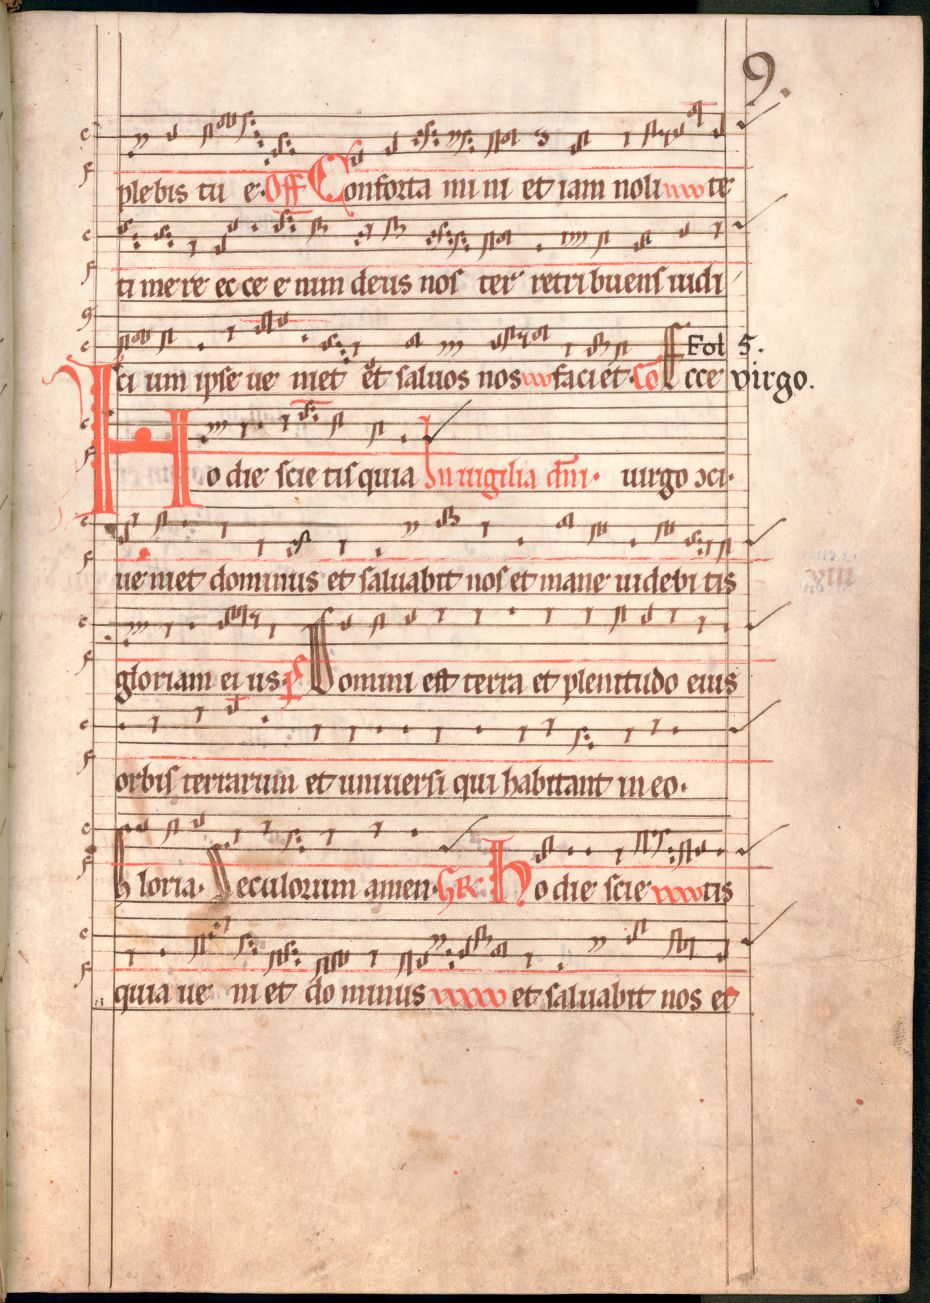 9.
plebis tu e. Off Conforta mi ni et iam noli te
ti mere ec ce e nim deus nos ter retribuens iudi
Fol 5.
ci um ipse ue niet et saluos nos faciet. Co Ecce virgo.
Ho die scie tis quia In uigilia dni. uirgo ɔci.
ue niet dominus et saluabit nos et mane uidebi tis
gloriam ei us. Ps Domini est terra et plenitudo eius
orbis terrarum et uniuersi qui habitant in eo.
Gloria. Seculorum amen. GR. Ho die scie tis
quia ue ni et do minus et saluabit nos et